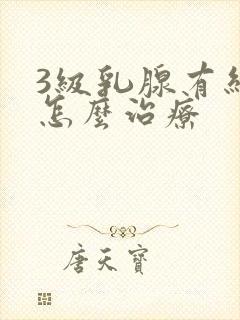 3級乳腺有
怎麼治療
唐天寶